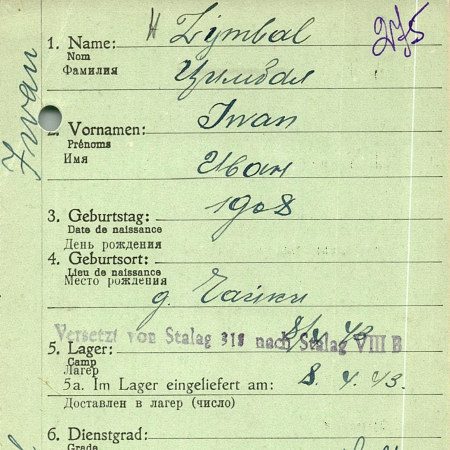 275
1. Name: Zymbal
Nom
Фамилия Цимбал
Iwan
2. Vornamen: Iwan
Prénoms
Имя Иван
3. Geburtstag: 1908
Date de naissance
День рождения
4. Geburtsort:
Lieu de naissance
Место рождения
д. Чайки
Versetzt von Stalag 318 nach Stalag VIII B
5. Lager: 43
Camp
Лагерь
5a. Im Lager eingeliefert am: 8. 4. 43.
Доставлен в лагер (число)
6. Dienstgrad:
Grade